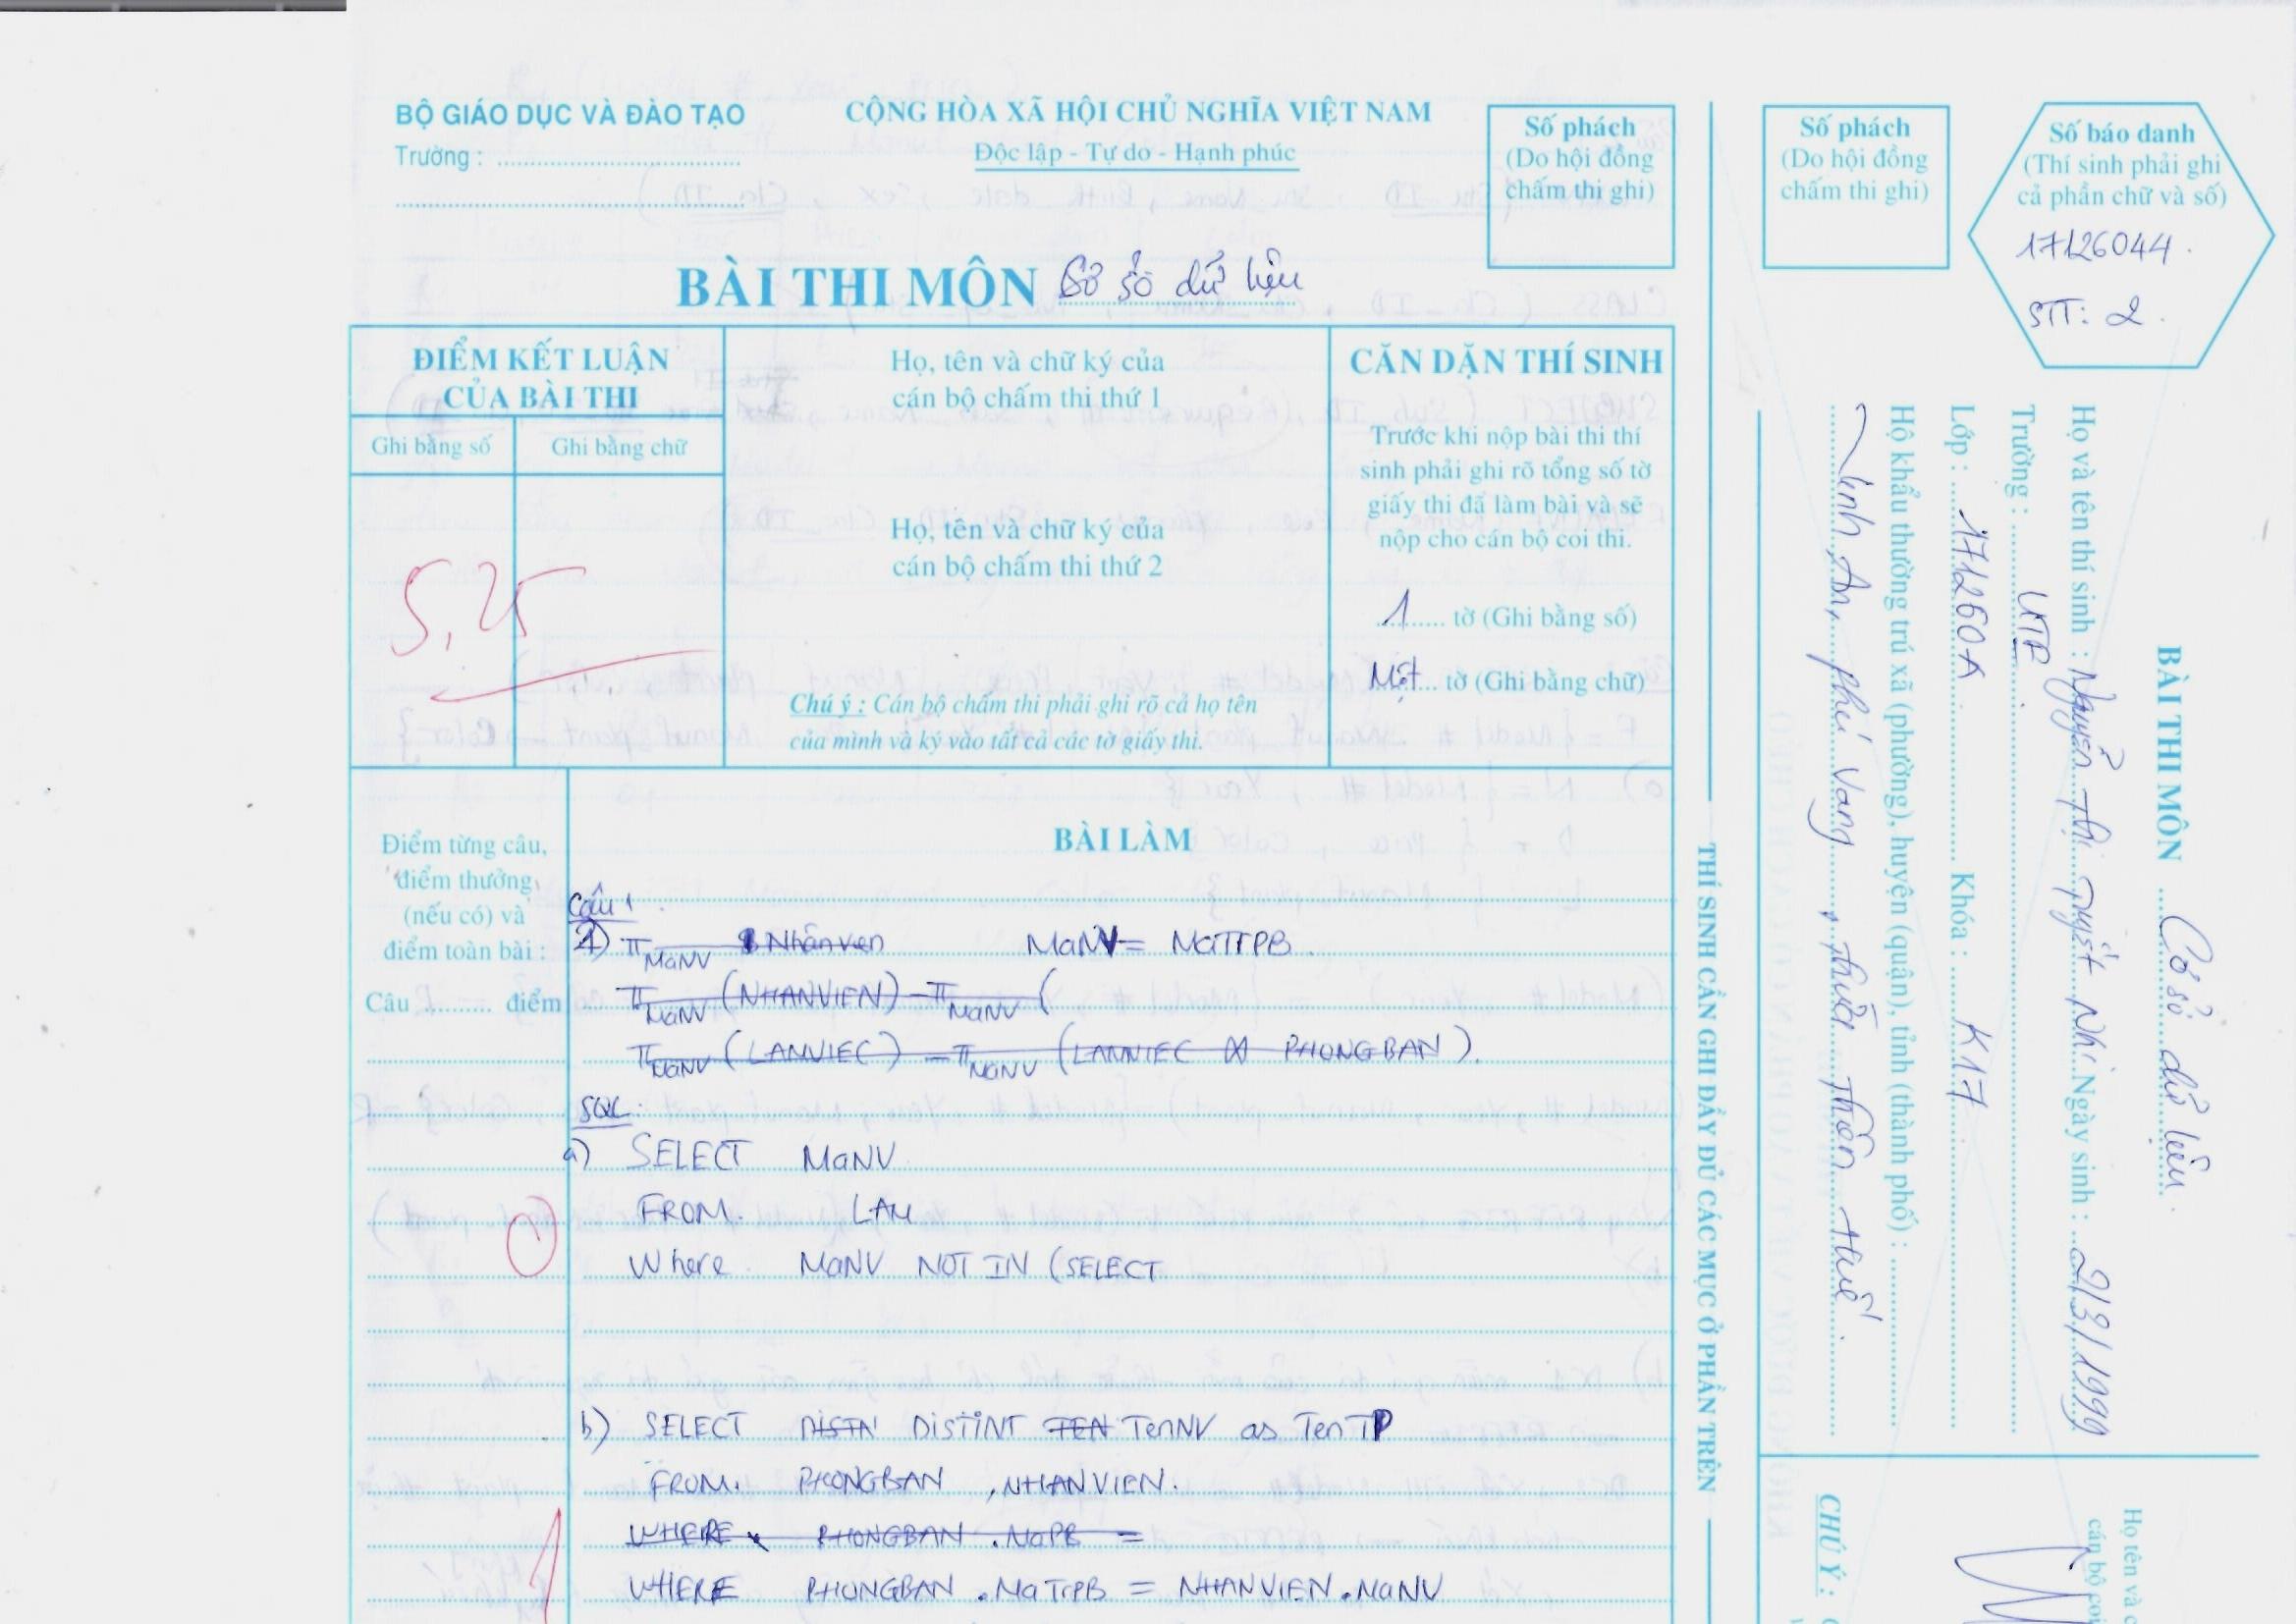 BỘ GIÁO DỤC VÀ ĐÀO TẠO
Trường :
CỘNG HÒA XÃ HỘI CHỦ NGHĨA VIỆT NAM
Độc lập - Tự do - Hạnh phúc
Số phách
(Do hội đồng
chấm thi ghi)
BÀI THI MÔN Cơ sở dữ liệu
ĐIỂM KẾT LUẬN
CỦA BÀI THI
Ghi bằng số
Ghi bằng chữ
5,25
Họ, tên và chữ ký của
cán bộ chấm thi thứ 1
Họ, tên và chữ ký của
cán bộ chấm thi thứ 2
Chú ý : Cán bộ chấm thi phải ghi rõ cả họ tên
của mình và ký vào tất cả các tờ giấy thi.
CĂN DẶN THÍ SINH
Trước khi nộp bài thi thí
sinh phải ghi rõ tổng số tờ
giấy thi đã làm bài và sẽ
nộp cho cán bộ coi thi.
1 tờ (Ghi bằng số)
Một tờ (Ghi bằng chữ)
Điểm từng câu,
điểm thưởng
(nếu có) và
điểm toàn bài :
Câu ......... điểm
BÀI LÀM
Câu 1
1) π MaNV Nhanvien MaNV = MaTrPB
π MaNV (NHANVIEN) - π MaNV (
π MaNV (LAMVIEC) - π MaNV (LAMVIEC ⋈ PHONGBAN).
SQL:
a) SELECT MaNV
FROM LAM
Where MaNV NOT IN (SELECT
b) SELECT DISTN DISTINT TEN TenNV as TenTP
FROM. PHONGBAN , NHANVIEN.
WHERE PHONGBAN . MaPB =
WHERE PHONGBAN . MaTrPB = NHANVIEN . MaNV
1
THÍ SINH CẦN GHI ĐẦY ĐỦ CÁC MỤC Ở PHẦN TRÊN
Số phách
(Do hội đồng
chấm thi ghi)
Số báo danh
(Thí sinh phải ghi
cả phần chữ và số)
17126044.
STT: 2.
BÀI THI MÔN Cơ sở dữ liệu
Họ và tên thí sinh : Nguyễn Thị Tuyết Nhi Ngày sinh : 2/3/1999
Trường :
Lớp : 171260A Khóa : K17
Hộ khẩu thường trú xã (phường), huyện (quận), tỉnh (thành phố) :
Vinh An, Phú Vang, Thừa Thiên Huế.
CHÚ Ý :
Họ tên và c
cán bộ co